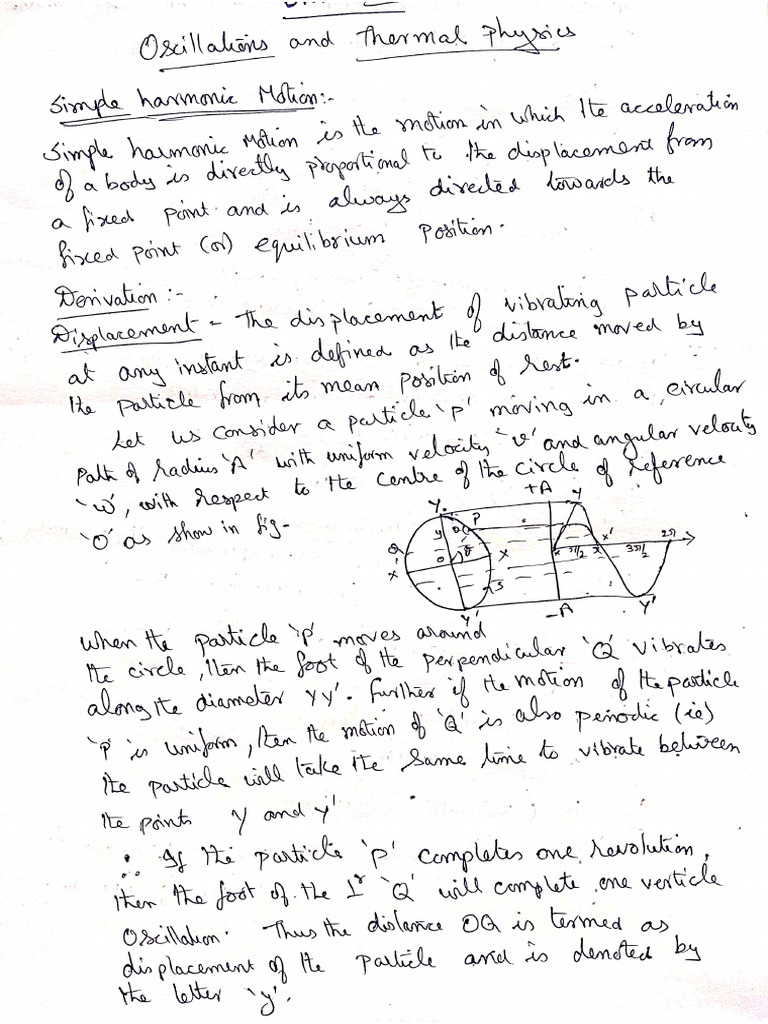 Oscillations and Thermal Physics
Simple harmonic Motion:-
Simple harmonic Motion is the motion in which the acceleration
of a body is directly proportional to the displacement from
a fixed point and is always directed towards the
fixed point (or) equilibrium position.
Derivation :-
Displacement - The displacement of vibrating particle
at any instant is defined as the distance moved by
the particle from its mean position of rest.
Let us consider a particle 'P' moving in a circular
path of radius 'A' with uniform velocity 'v' and angular velocity
'w', with respect to the centre of the circle of reference
'O' as show in fig-
Y P +A Y
y θ
Q O θ X x π/2 π x' 3π/2 2π
X' S
Y' -A Y'
When the particle 'P' moves around
the circle, then the foot of the perpendicular 'Q' vibrates
along the diameter YY'. Further if the motion of the particle
'P' is uniform, then the motion of 'Q' is also periodic (ie)
the particle will take the same time to vibrate between
the points Y and Y'
∴ If the particle 'P' completes one revolution,
then the foot of the ⊥r 'Q' will complete one verticle
Oscillation. Thus the distance OQ is termed as
displacement of the particle and is denoted by
the letter 'y'.